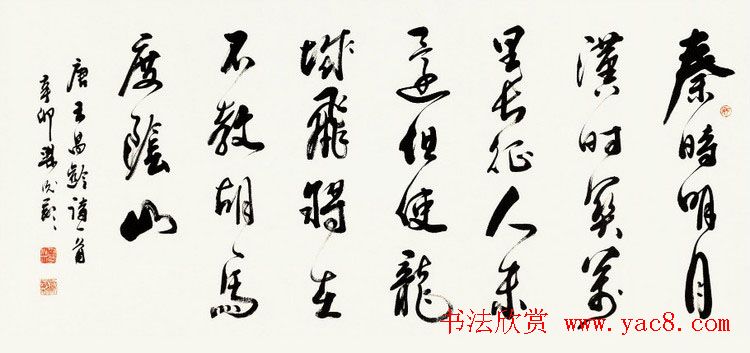 秦時明月
漢时關萬
里長征人未
還但使龍
城飛將在
不教胡馬
度陰山
唐王昌齡詩一首
辛卯
书法欣赏 www.yac8.com